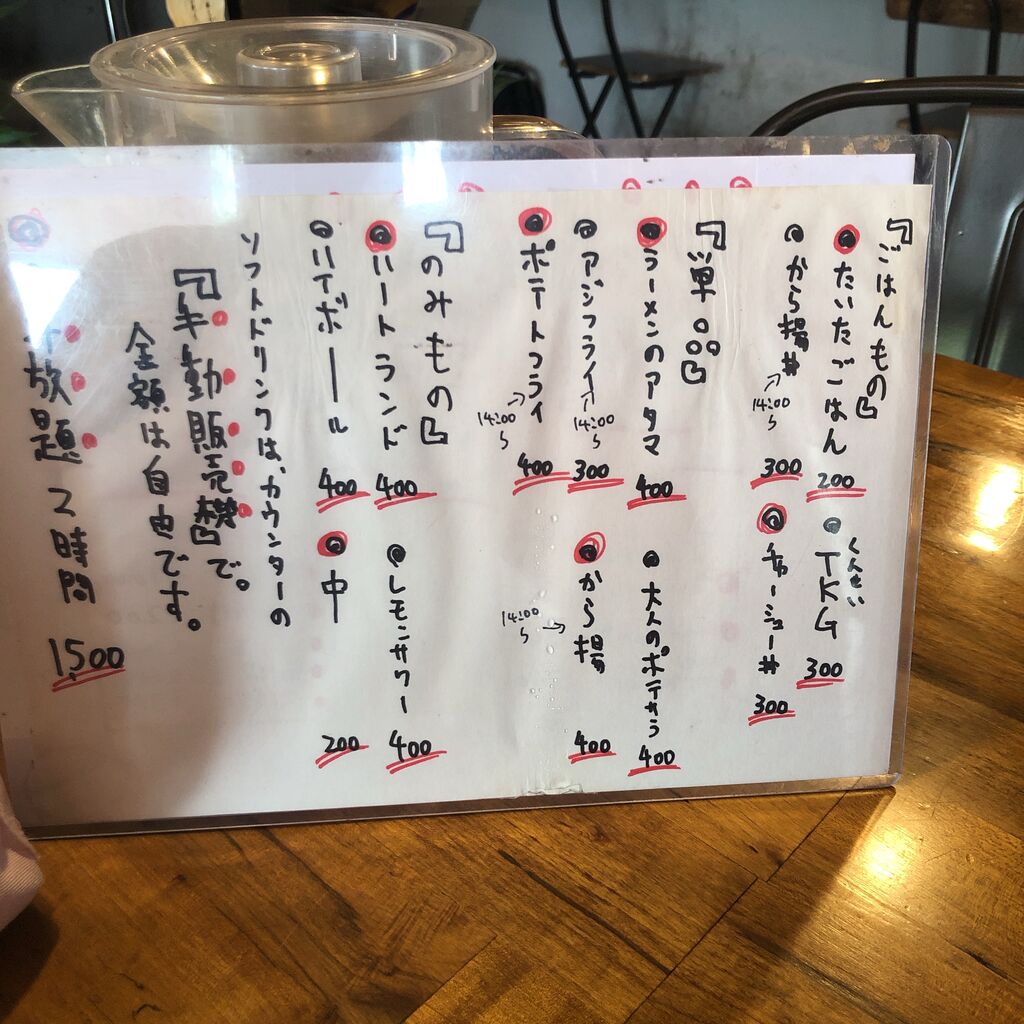 『ごはんもの』
◎たいたごはん 200
くんせい
◎TKG 300
◎から揚丼 300
14:00〜
◎チャーシュー丼 300
『単品』
◎ラーメンのアタマ 400
◎大人のポテサラ 400
◎アジフライ 300
14:00〜
◎から揚 400
14:00〜
◎ポテトフライ 400
14:00〜
『のみもの』
◎ハートランド 400
◎レモンサワー 400
◎ハイボール 400
◎中 200
ソフトドリンクは、カウンターの
『手動販売機』で。
金額は自由です。
放題 2時間 1,500